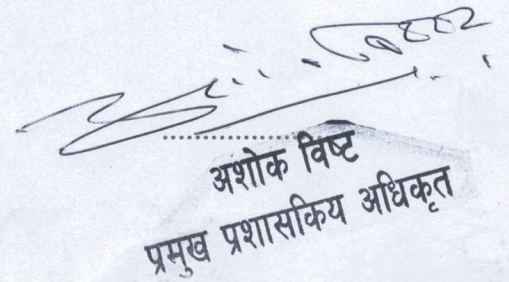 अशोक विष्ट
प्रमुख प्रशासकिय अधिकृत